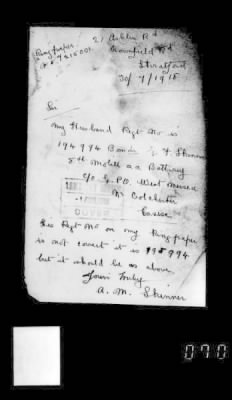 21 Ashlin Rd
Ring paper
Crownfield Rd
Stratford
30/7/1918
Sir
My Husband Regt No is
194994 Bomdr F. Skinner
5th Mobile a a Battery
C/o G.P.O. West Mersea
Nr Colchester
Essex
his Regt No on my Ring paper
is not correct it is 195994
but it should be as above
Yours truly
A. M. Skinner
090